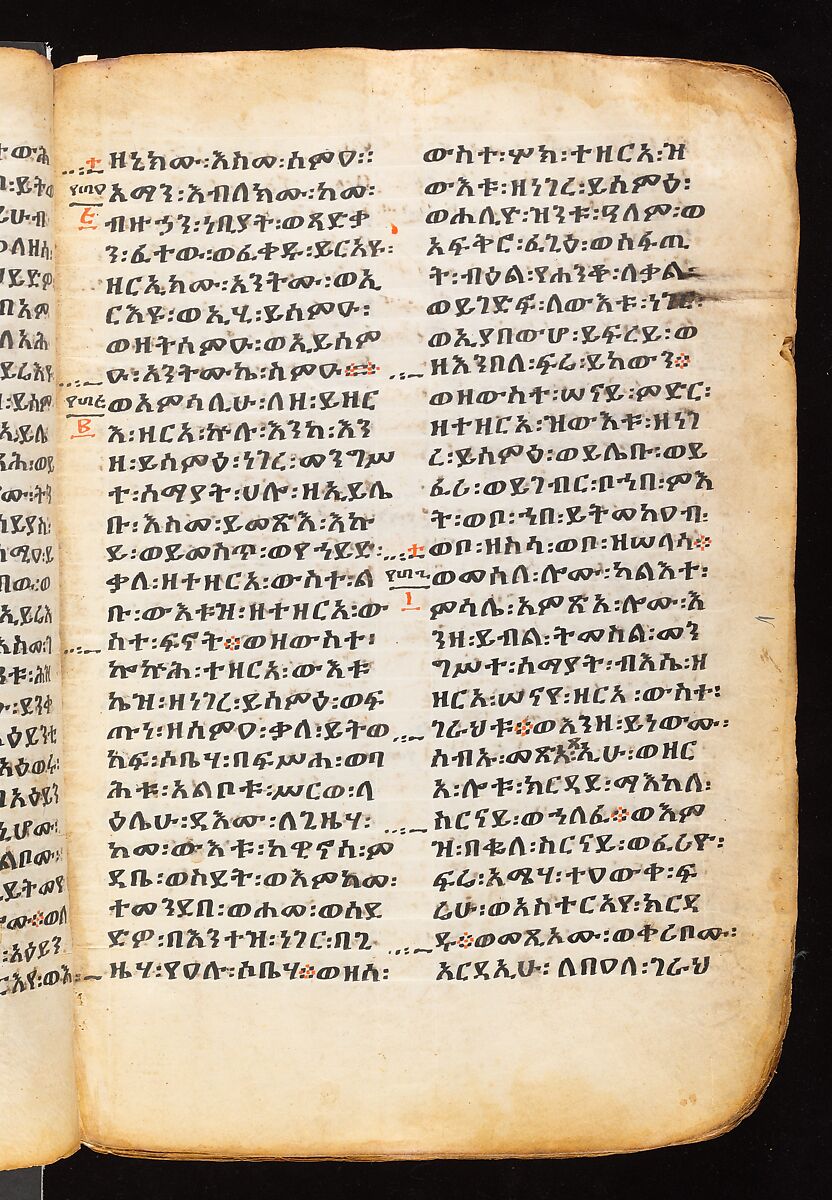 ዘኒክሙ፡እስመ፡ሰምዐ፡፡
አማን፡እብለክሙ፡ከመ፡
ብዙኃን፡ነቢያት፡ወጻድቃ
ን፡ፈተው፡ወፈቀዱ፡ይርአዩ፡
ዘርኢክሙ፡አንትሙ፡ወኢ
ርእዩ፡ወኢሂ፡ይስምዑ፡
ወዘትሰምዑ፡ወኢይሰም
ዑ፡አንትሙኬ፡ስምዑ፨
ወአምሳሊሁ፡ለዘ፡ይዘር
እ፡ዘርአ፡ኵሉ፡እንከ፡እን
ዘ፡ይሰምዕ፡ነገረ፡መንግሥ
ተ፡ሰማያት፡ሀሎ፡ዘኢይሌ
ቡ፡እስመ፡ይመጽእ፡እኩ
ይ፡ወይመስጥ፡ወየኀይድ፡
ቃለ፡ዘተዘርአ፡ውስተ፡ል
ቡ፡ውእቱዝ፡ዘተዘርአ፡ው
ስተ፡ፍኖት፨ወዘውስተ፡
ኰኵሕ፡ተዘርአ፡ውእቱ
ኬዝ፡ዘነገረ፡ይሰምዕ፡ወፍ
ጡነ፡ዘሰምዐ፡ቃለ፡ይትወ
ከፍ፡ሶቤሃ፡በፍሥሐ፡ወባ
ሕቱ፡አልቦቱ፡ሥርወ፡ላ
ዕሌሁ፡ዳእሙ፡ለጊዜሃ፡
ከመ፡ውእቱ፡ከዊኖሰ፡ም
ዳቤ፡ወስደት፡ወእምከመ፡
ተመንደበ፡ወሐመ፡ወሰደ
ድዎ፡በእንተዝ፡ነገር፡በጊ
ዜሃ፡የዐሉ፡ሶቤሃ፨ወዘሰ፡
ውስተ፡ሦክ፡ተዘርአ፡ዝ
ውእቱ፡ዘነገረ፡ይሰምዕ፡
ወሐሊዮ፡ዝንቱ፡ዓለም፡ወ
አፍቅሮ፡ፈጊዕ፡ወስፋጢ
ት፡ብዕል፡የሐንቆ፡ለቃል፡
ወይገድፎ፡ለውእቱ፡ነገር፡
ወኢያበውሆ፡ይፍረይ፡ወ
ዘእንበለ፡ፍሬ፡ይከውን፨
ወዘውስተ፡ሠናይ፡ምድር፡
ዘተዘርአ፡ዝውእቱ፡ዘነገ
ረ፡ይሰምዕ፡ወይሌቡ፡ወይ
ፈሪ፡ወይገብር፡ቦኀበ፡ምእ
ት፡ወቦ፡ኀበ፡ይትመከዐብ፡
ወቦ፡ዘስሳ፡ወቦ፡ዘሠላሳ፨
ወመሰለ፡ሎሙ፡ካልእተ፡
ምሳሌ፡አምጽአ፡ሎሙ፡እ
ንዘ፡ይብል፡ትመስል፡መን
ግሥተ፡ሰማያት፡ብእሴ፡ዘ
ዘርአ፡ሠናየ፡ዘርአ፡ውስተ፡
ገራህቱ፨ወእንዘ፡ይነውሙ፡
ስብኡ፡መጽአጸኢሁ፡ወዘር
አ፡ሎቱ፡ክርዳደ፡ማእከለ፡
ስርናይ፡ወኀለፈ፨ወእም
ዝ፡በቈለ፡ስርናይ፡ወፈሪዮ፡
ፍሬ፡አሜሃ፡ተዐውቀ፡ፍ
ሬሁ፡ወአስተርአየ፡ክርዳ
ዱ፨ወመጺአሙ፡ወቀሪቦሙ፡
አርዳኢሁ፡ለበዐለ፡ገራህ